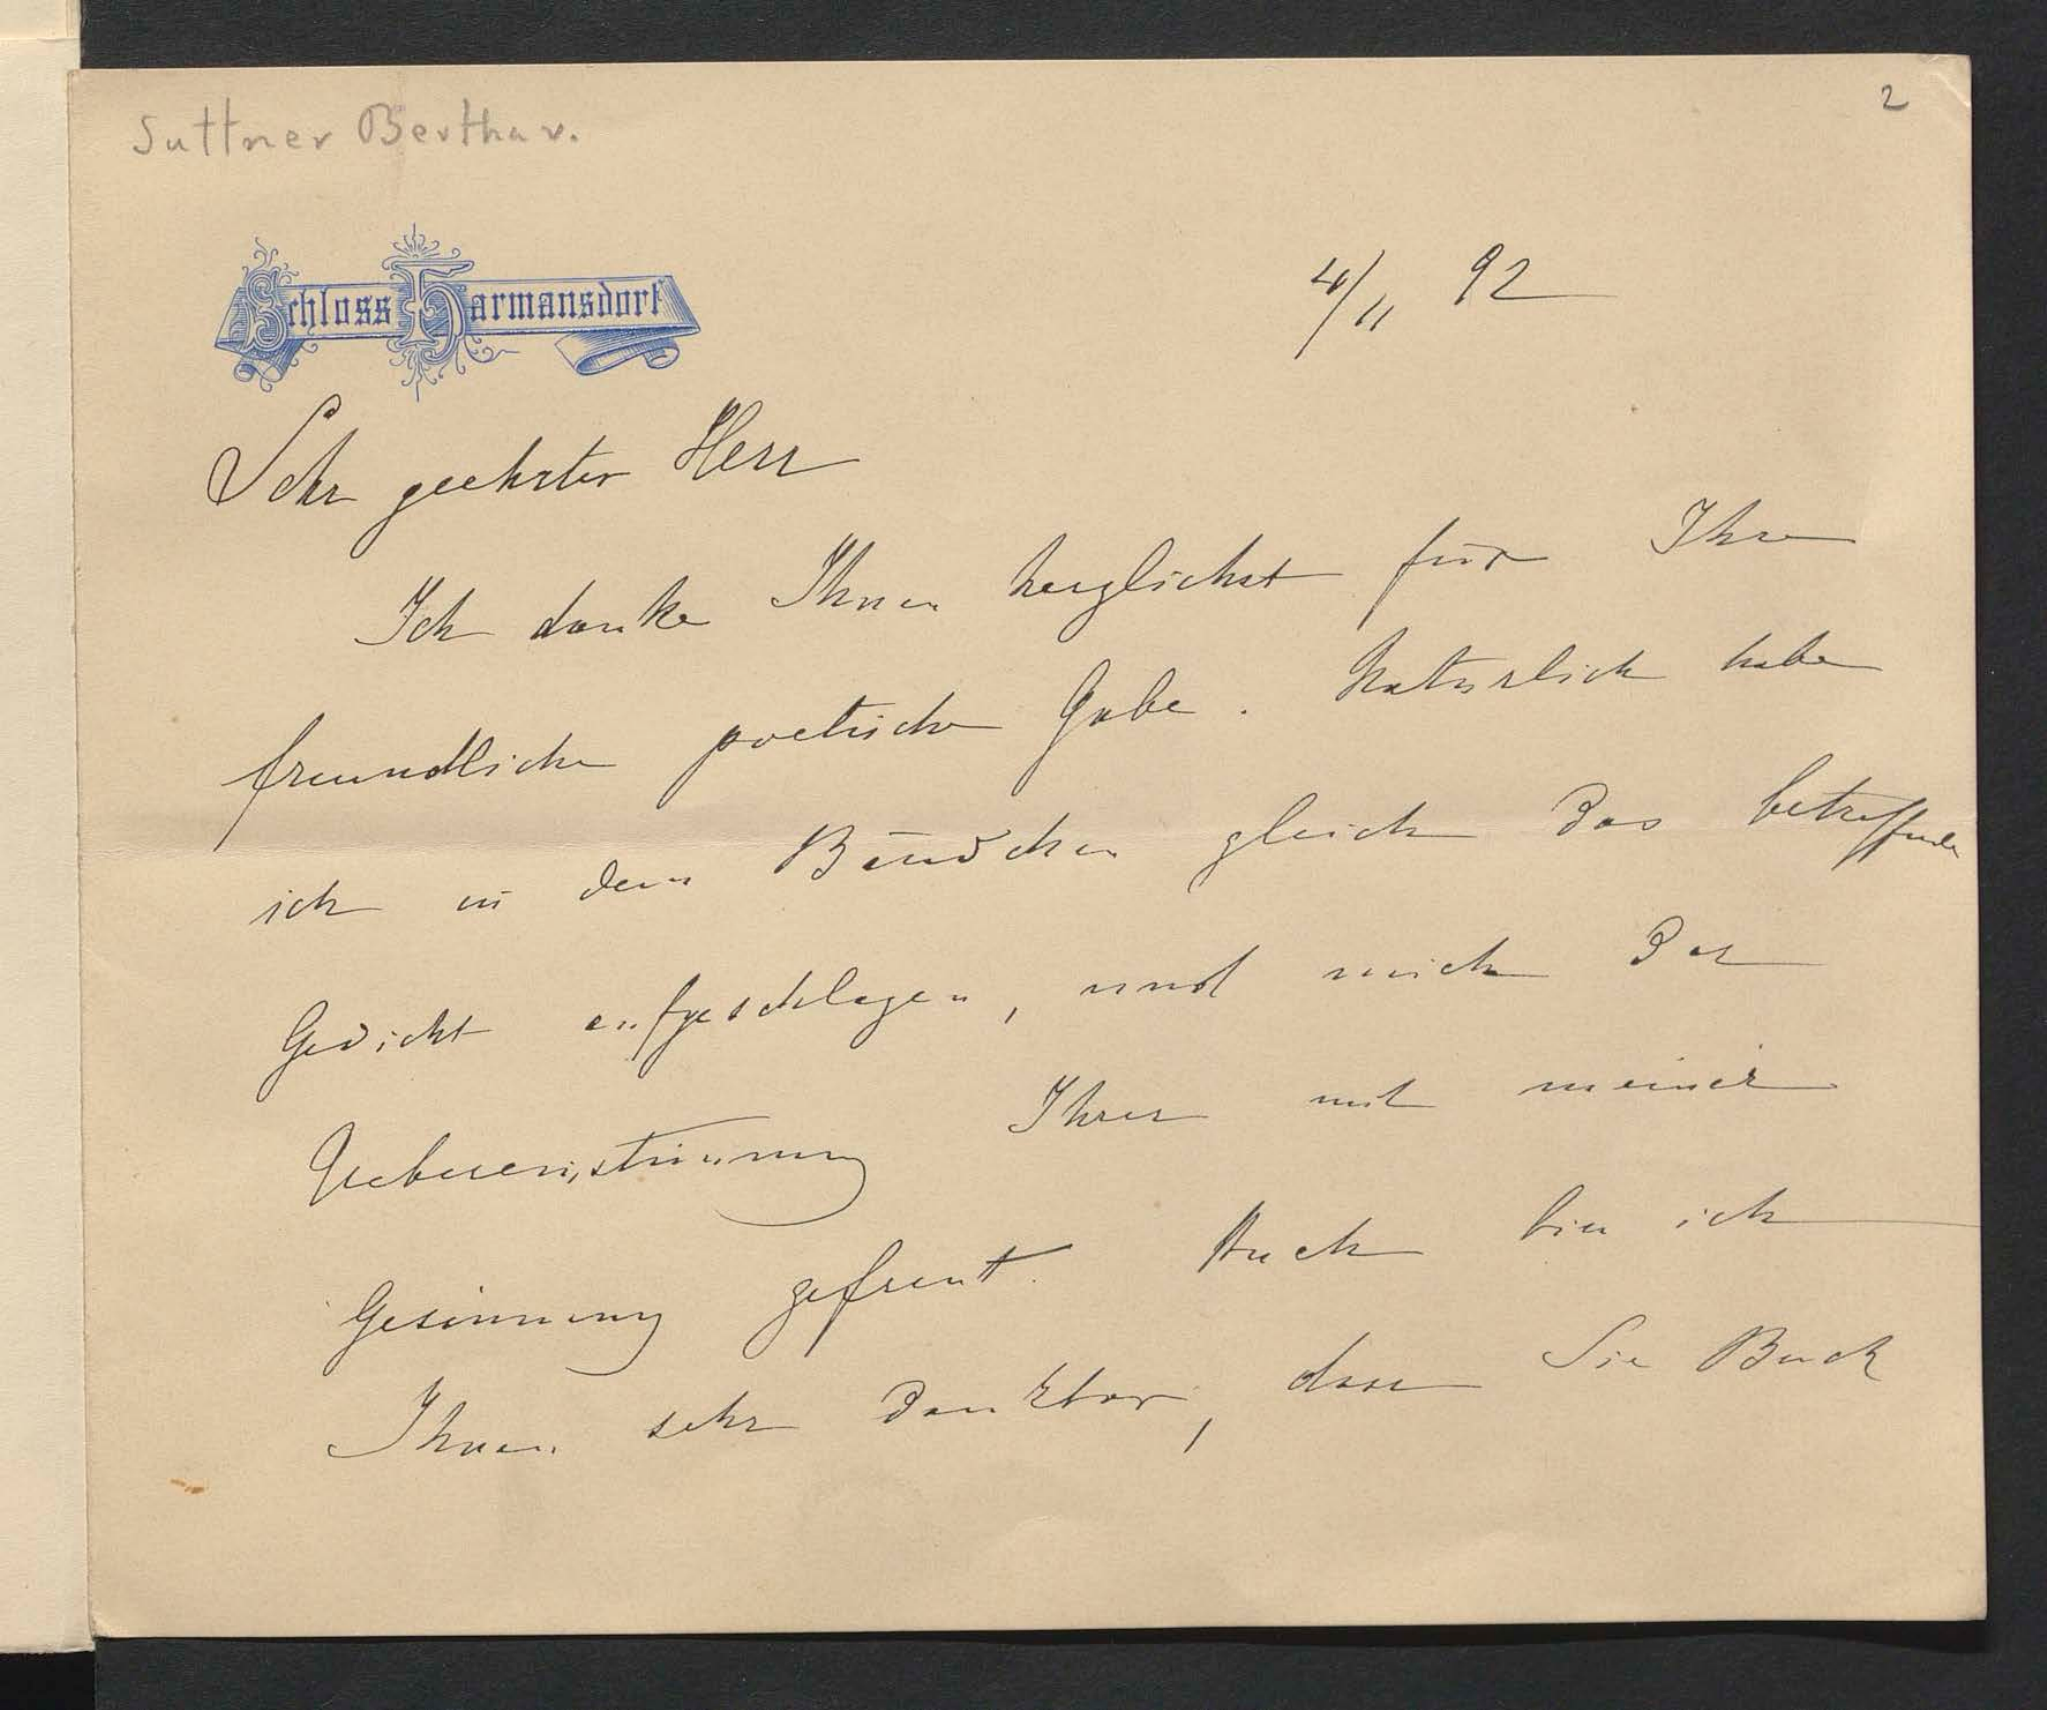 2
Suttner Bertha v.
Schloss Harmansdorf
4/11 92
Sehr geehrter Herr
Ich danke Ihnen herzlichst für Ihre
freundliche poetische Gabe. Natürlich habe
ich in dem Bändchen gleich das betreffende
Gedicht aufgeschlagen, und mich der
Uebereinstimmung Ihrer mit meiner
Gesinnung gefreut. Auch bin ich
Ihnen sehr dankbar, dass Sie Buch